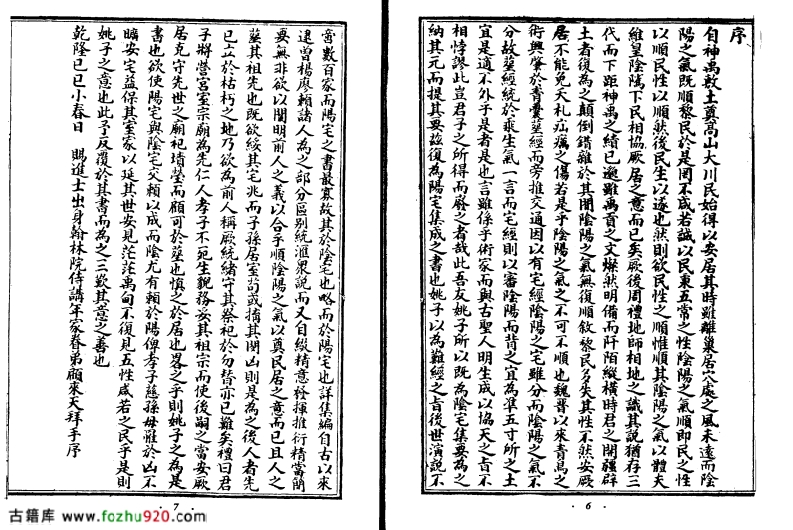 序
自神禹敷土奠高山大川民始得以安居其時雖離巢居穴處之風未遠而陰
陽之氣既順黎民於是罔不咸若誠以民秉五常之性陰陽之氣順即民之性
以順民性以順然後民生以遂也然則欲民性之順惟順其陰陽之氣以體夫
維皇陰隲下民相協厥居之意而已矣厥後周禮地師相地之識其說猶存三
代而下距神禹之績已邈雖禹貢之文燦然明備而阡陌縱橫時君之開疆辟
土者復為之顛倒錯雜於其間陰陽之氣無復順敘黎民多失其性不然安厥
居不能免夭札疝癘之傷若是乎陰陽之氣之不可不順也魏晉以來青烏之
術興肇於青囊葬經而旁推交通因以有宅經陰陽之宅雖分而陰陽之氣不
分故葬經統於乘生氣一言而宅經則以審陰陽而背之宜為準五寸所之土
宜是適不外乎是者是也言雖係乎術家而與古聖人明生成以協天之旨不
相悖謬此豈君子之所得而廢之者哉此吾友姚子所以既為陰宅集要為之
納其元而提其要茲復為陽宅集成之書也姚子以為難經之旨後世演說不
啻數百家而陽宅之書最寡故其於陰宅也略而於陽宅也詳集編自古以來
逮曾楊廖賴諸人為之部分區別統滙眾說而又自綴精意發揮推衍精當簡
要無非欲以闡明前人之義以合乎順陰陽之氣以奠民居之意而已且人之
葬其祖先也既欲綏其宅兆而子孫居室苟或擣其閑凶則是為之後人者先
已立於枯朽之地乃欲為前人稱厥統緒守其祭祀於勿替亦已難矣禮曰君
子將營宮室宗廟為先仁人孝子不死生貌務妥其祖宗而使後嗣之當安厥
居克守先世之廟祀墳塋而顧可於葬也慎之於居也畧之乎則姚子之為是
書也欲使陽宅與陰宅交賴以成而陰尤有賴於陽俾孝子慈孫毋罹於凶不
曠安宅益保其室家以延其世安見茫茫禹甸不復見五性咸若之民乎是則
姚子之意也此予反覆於其書而為之三歎其意之善也
乾隆己巳小春日 賜進士出身翰林院侍講年家眷弟顧來天拜手序
·6·
·7·
古籍库 www.fozhu920.com